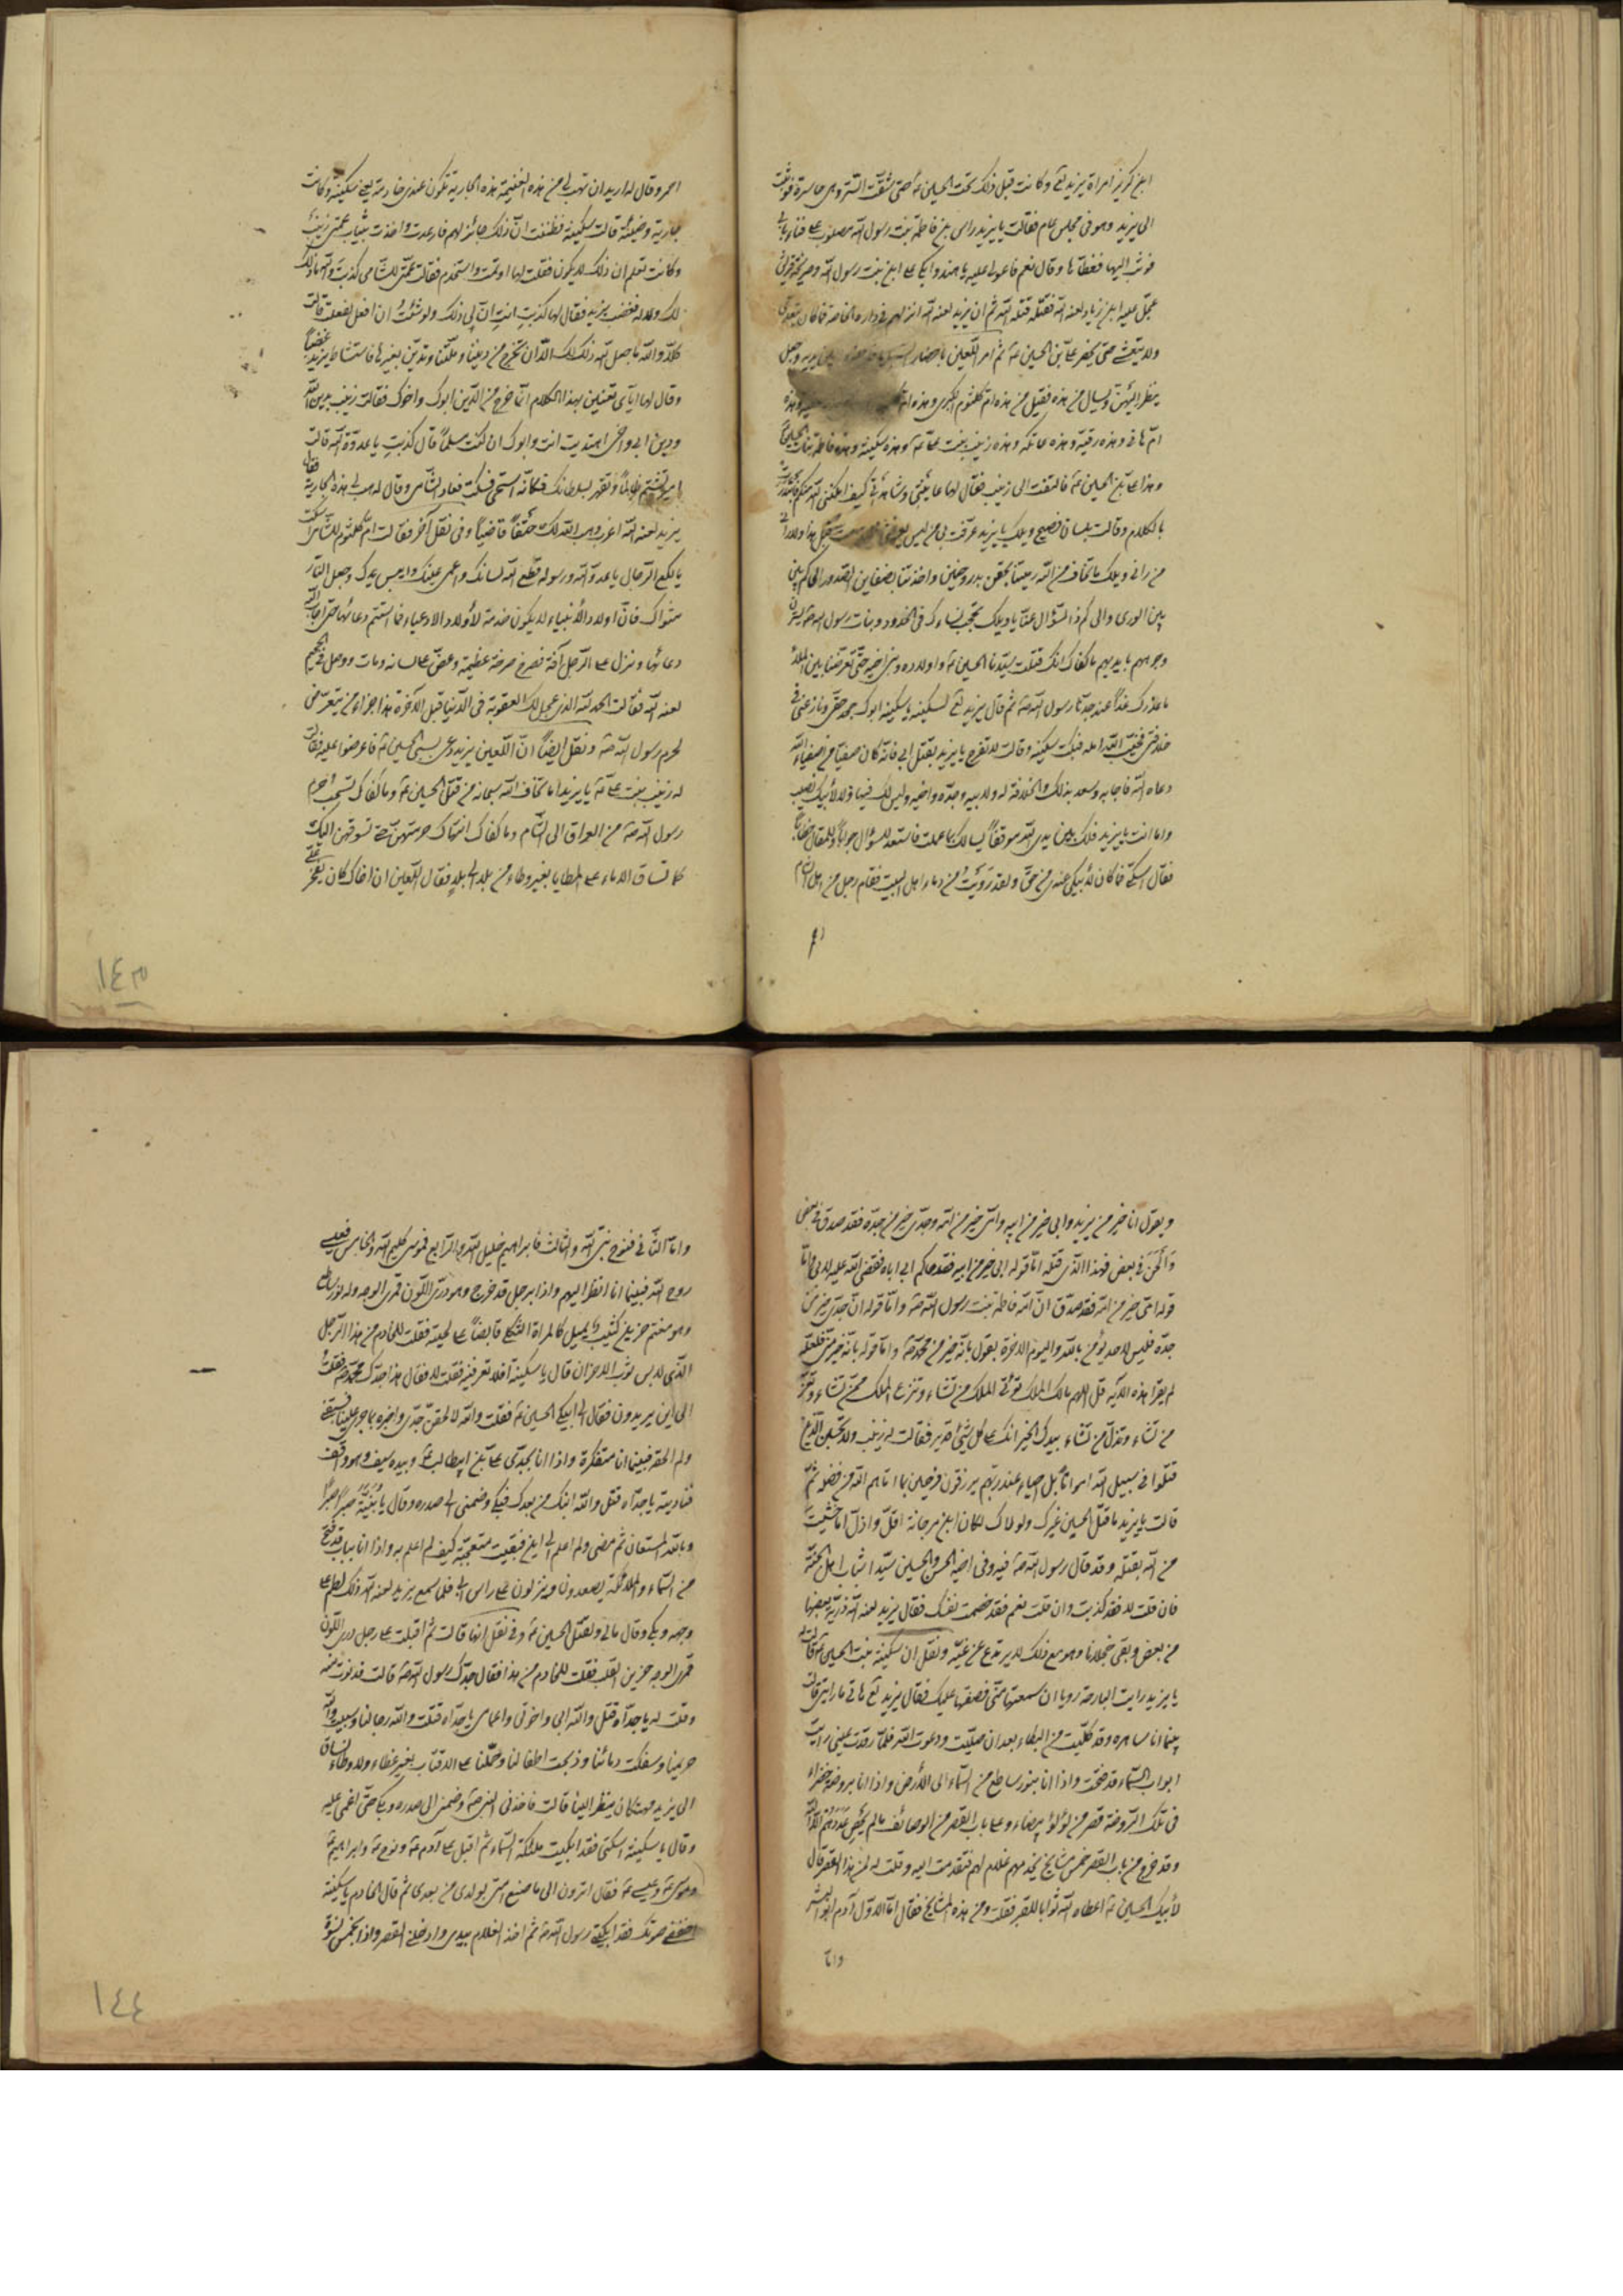 ابن كريز امراة يزيد لع وكانت قبل ذلك تحت الحسين ع حتى شقت الستر وهى حاسرة فوثبت
الى يزيد وهو فى مجلس عام فقالت يا يزيد راس ابن فاطمة بنت رسول الله مصلوب على فناء بابى
فوثب اليها فغطاها وقال نعم فاعولى عليه يا هند وابكى على ابن بنت رسول الله وصريخة قريش
عجل عليه ابن زياد لعنه الله فقتله قتله الله ثم ان يزيد لعنه الله انزلهم فى داره الخاصة فما كان يتغدى
ولا يتعشى حتى يحضر على بن الحسين ع ثم امر اللعين باحضار وجعل
ينظر اليهن ويسال من هذه فقيل من هذه ام كلثوم الكبرى وهذه ام وهذه
ام هانى وهذه رقية وهذه عاتكة وهذه زينب بنت على ع وهذه سكينة وهذه فاطمة بنات الحسين ع
وهذا على بن الحسين ع فالتفت الى زينب فقال لها كيف امكننى الله منكم
بالكلام وقالت بلسان فصيح ويلك يا يزيد عرفت بى من ليس
من رانى ويلك يا يزيد ما تخاف من الله
بين الورى والى كم ذا السؤال عنا يا ويلك تحجب نساءك فى الخدور وبنات رسول الله ص يسترن
وجوههم بايديهم ما كفاك انك قتلت سيدنا الحسين ع واولاده وبنى اخيه حتى تعرضنا بين الملأ
ما عذرك غدا عند جدنا رسول الله ص ثم قال يزيد لع لسكينة يا سكينة ابوك جحد حقى ونازعنى فى
خلافتى فخيب الله امله فبكت سكينة وقالت لا تفرح يا يزيد بقتل ابى فانه كان صفيا من اصفياء الله
دعاه الله فاجابه وسعد بذلك والخلافة له ولابيه وجده واخيه وليس لك فيها ولا لأبيك نصيب
واما انت يا يزيد فلك بين يدى الله موقفا يسالك بما عملت فاستعد للسؤال جوابا وللمقال خطابا
فقال اسكتى فما كان لأبيكى عندى من حق ولقد رويت من دماء اهل البيت فقام رجل من اهل الشام
احمر وقال له اريد ان تهب لى من هذه الغنيمة هذه الجارية تكون عندى خادمة يعنى سكينة وكانت
جارية وضيئة قالت سكينة فظننت ان ذلك جائز لهم فارعدت واخذت بثياب عمتى زينب
وكانت تعلم ان ذلك لا يكون فقلت لها اوتمت واستخدم فقالت عمتى للشامى كذبت والله ما ذلك
لك ولا له فغضب يزيد فقال لها كذبت انت ان لى ذلك ولو شئت ان افعل لفعلت قالت
كلا والله ما جعل الله ذلك لك الا ان تخرج من ديننا وملتنا وتدين بغيرها فاستشاط يزيد غضبا
وقال لها اياى تعنين بهذا الكلام انما خرج من الدين ابوك واخوك فقالت زينب بدين الله
ودين ابى واخى اهتديت انت وابوك ان كنت مسلما قال كذبت يا عدوة الله قالت
امير تشتم ظالما وتقهر بسلطانك فكانه استحى فسكت فعاد الشامى وقال له هب لى هذه الجارية فقال
يزيد لعنه الله اعزب وهب الله لك حتفا قاضيا وفى نقل اخر فقالت ام كلثوم للشامى اسكت
يا لكع الرجال يا عدو الله ورسوله قطع الله لسانك واعمى عينك وايبس يدك وجعل النار
مثواك فان اولاد الأنبياء لا يكون خدمة لأولاد الادعياء فما استتم دعائها حتى اجاب الله
دعائها ونزل على الرجل آفة فصرخ صرخة عظيمة وعض على لسانه ومات ووصل فى الجحيم
لعنه الله فقالت الحمد لله الذى عجل لك العقوبة فى الدنيا قبل الآخرة هذا جزاء من يتعرض
لحرم رسول الله ص ونقل ايضا ان اللعين يزيد دعى بسبى الحسين ع فاعرضوا عليه فقالت
له زينب بنت على ع يا يزيد اما تخاف الله سبحانه من قتل الحسين ع وما كفاك تسحب حرم
رسول الله ص من العراق الى الشام وما كفاك انتهاك حرمتهن حتى تسوقهن اليك
كما تساق الاماء على المطايا بغير وطاء من بلد الى بلد فقال اللعين ان اخاك كان يفخر على
١٤٣
ويقول انا خير من يزيد وابى خير من ابيه وامى خير من امه وجدى خير من جده فقد صدق فى بعض
والحن فى بعض فهذا الذى قتله اما قوله ابى خير من ابيه فقد حاكم ابى اباه فقضى الله عليه لابى واما
قوله امى خير من امه فقد صدق ان امه فاطمة بنت رسول الله ص واما قوله ان جدى خير من
جده فليس لاحد يؤمن بالله واليوم الاخرة يقول بانه خير من محمد ص واما قوله بانه خير منى فلعله
لم يقرا هذه الآية قل اللهم مالك الملك تؤتى الملك من تشاء وتنزع الملك ممن تشاء وتعز
من تشاء وتذل من تشاء بيدك الخير انك على كل شيئ قدير فقالت له زينب ولا تحسبن الذين
قتلوا فى سبيل الله امواتا بل احياء عند ربهم يرزقون فرحين بما اتاهم الله من فضله ثم
قالت يا يزيد ما قتل الحسين غيرك ولولاك لكان ابن مرجانة اقل واذل اما خشيت
من الله بقتله وقد قال رسول الله ص فيه وفى اخيه الحسن والحسين سيدا شباب اهل الجنة
فان قلت لا فقد كذبت وان قلت نعم فقد خصمت نفسك فقال يزيد لعنه الله ذرية بعضها
من بعض وبقى خجلانا وهو مع ذلك لا يرتدع عن غيه ونقل ان سكينة بنت الحسين ع قالت له
يا يزيد رايت البارحة رويا ان سمعتها منى قصصتها عليك فقال يزيد لع هاتى ما رايتى قالت
بينما انا ساهرة وقد كليت من البكاء بعد ان صليت ودعوت الله فلما رقدت عينى رايت
ابواب السماء قد فتحت واذا انا بنور ساطع من السماء الى الأرض واذا انا بروضة خضراء
فى تلك الروضة قصر من لؤلؤ بيضاء وعلى باب القصر من الوصائف ما لم يحص عددهم الا الله
وقد خرج من باب القصر خمس مشايخ يخدمهم غلام لهم فتقدمت اليه وقلت له لمن هذا القصر قال
لأبيك الحسين ع اعطاه الله ثوابا للصبر فقلت ومن هذه المشايخ فقال اما الاول آدم ابو البشر
واما
واما الثانى فنوح نبى الله والثالث فابراهيم خليل الله والرابع فموسى كليم الله والخامس فعيسى
روح الله فبينما انا انظر اليهم واذا برجل قد خرج وهو درى اللون قمرى الوجه وله نور ساطع
وهو مغتم حزين كئيب يميل كالمراة الثكلى قابضا على لحيته فقلت للخادم من هذا الرجل
الذى لابس ثوب الاحزان قال يا سكينة افلا تعرفينه فقلت لا فقال هذا جدك محمد ص فقلت
الى اين يريدون فقال الى ابيكى الحسين ع فقلت والله لالحقن جدى واخبره بما جرى علينا فسبقنى
ولم الحقه فبينما انا متفكرة واذا انا بجدى على بن ابيطالب ع وبيده سيف وهو واقف
فناديته يا جداه قتل والله ابنك من بعدك فبكى وضمنى الى صدره وقال يا بنية صبرا صبرا
وبالله المستعان ثم مضى ولم اعلم الى اين فبقيت متعجبة كيف لم اعلم به واذا انا بباب قد فتح
من السماء والملائكة يصعدون وينزلون على راس ابى فلما سمع يزيد لعنه الله ذلك لطم على
وجهه وبكى وقال مالى ولقتل الحسين ع وفى نقل انها قالت ثم اقبلت على رجل درى اللون
قمرى الوجه حزين القلب فقلت للخادم من هذا فقال جدك رسول الله ص قالت فدنوت منه
وقلت له يا جداه قتل والله ابى واخوتى واعمامى يا جداه قتلت والله رجالنا وسبيت والله
حريمنا وسفكت دمائنا وذبحت اطفالنا وحملنا على الاقتاب بغير غطاء ولا وطاء نساق
الى يزيد ينظر الينا قالت فاخذنى النبى ص وضمنى الى صدره وبكى حتى اغمى عليه
وقال يا سكينة اسكتى فقد ابكيت ملئكة السماء ثم اقبل على آدم ع ونوح ع وابراهيم ع
وموسى ع وعيسى ع فقال اترون الى ما صنع امتى بولدى من بعدى ثم قال الخادم يا سكينة
اخفضى صوتك فقد ابكيتى رسول الله ص ثم اخذ الغلام بيدى وادخلنى القصر واذا بخمس نسوة
١٤٤